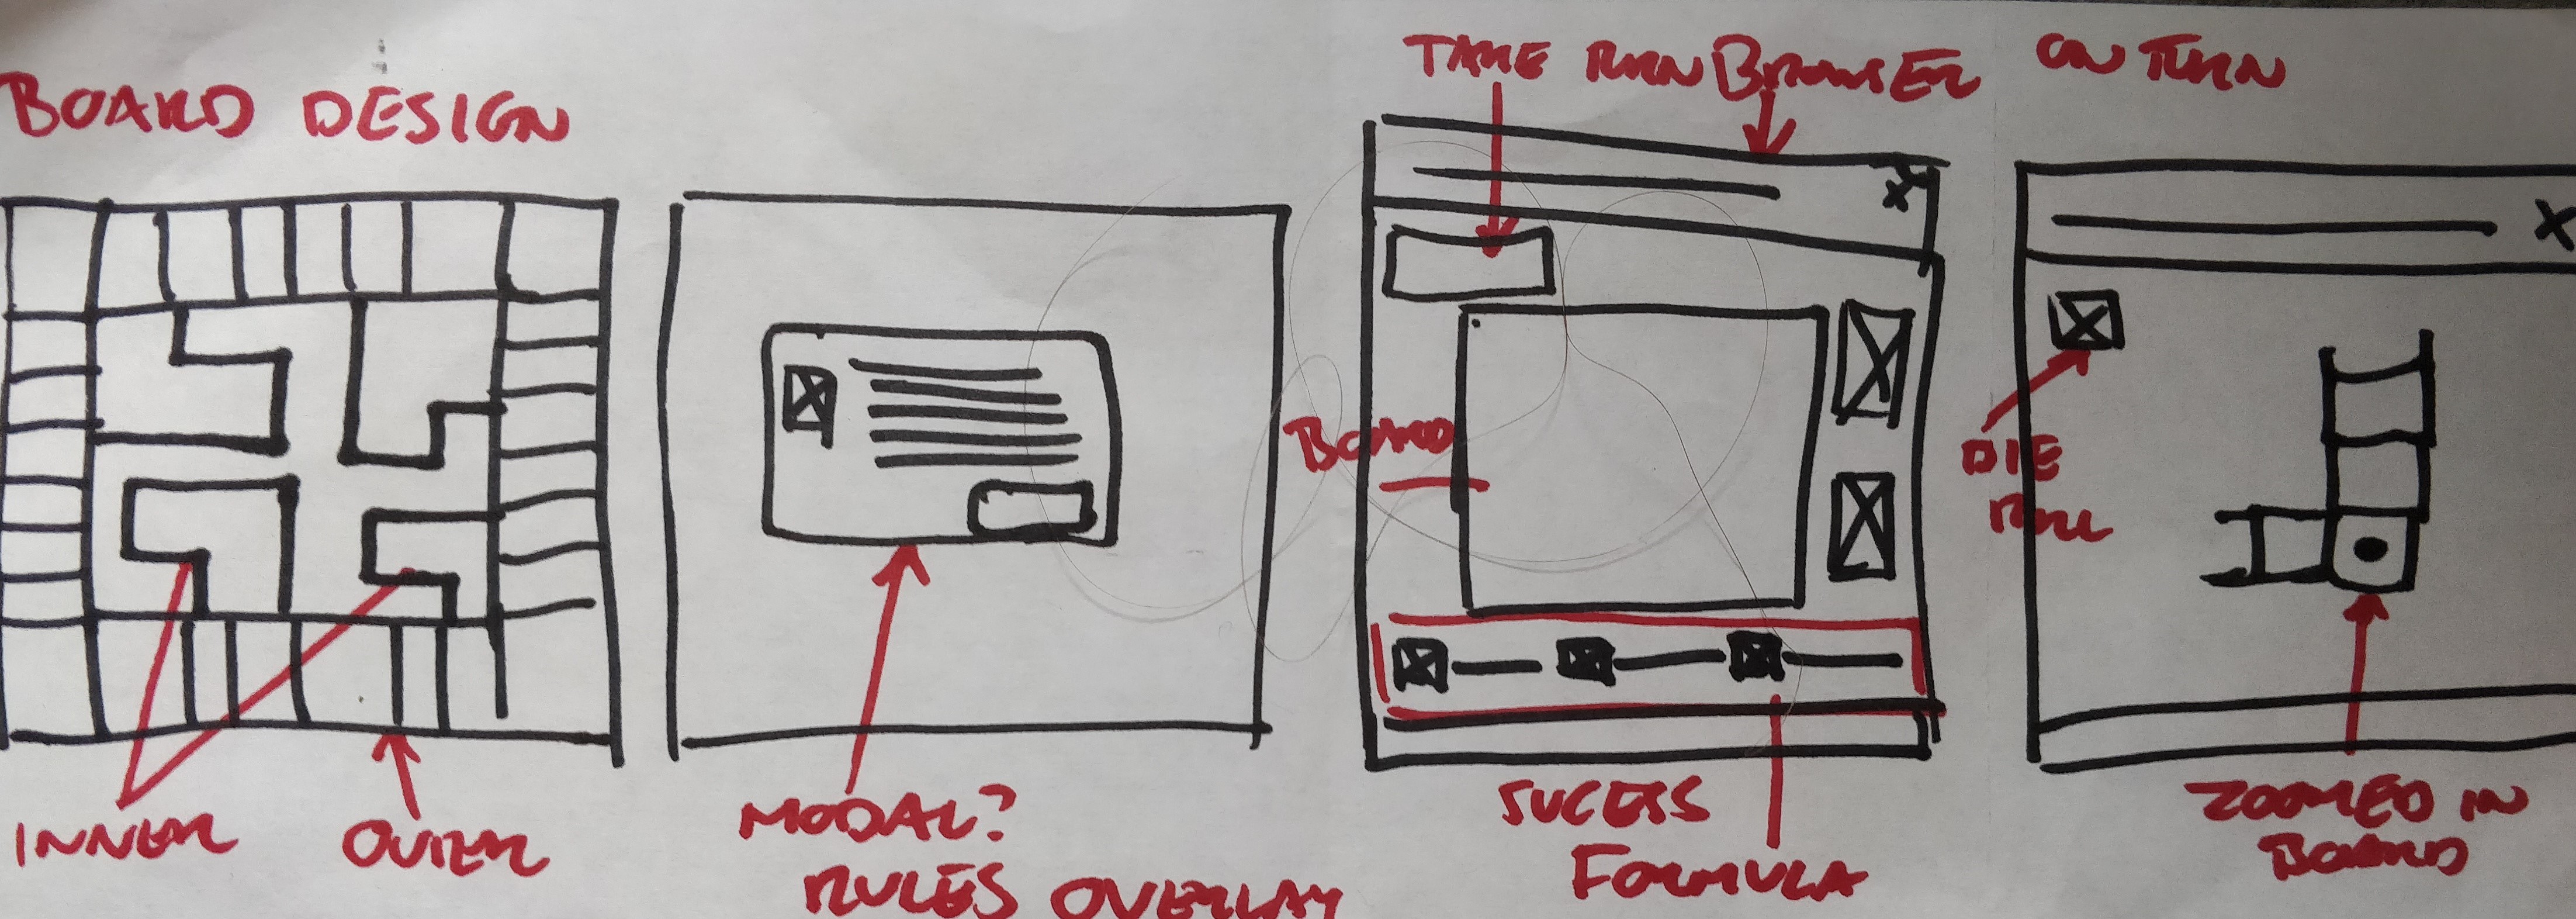 BOARD DESIGN
INNER
OUTER
MODAL?
RULES OVERLAY
TAKE TURN
BROWSER
BOARD
SUCESS
FORMULA
ON TURN
DIE
ROLL
ZOOMED IN
BOARD